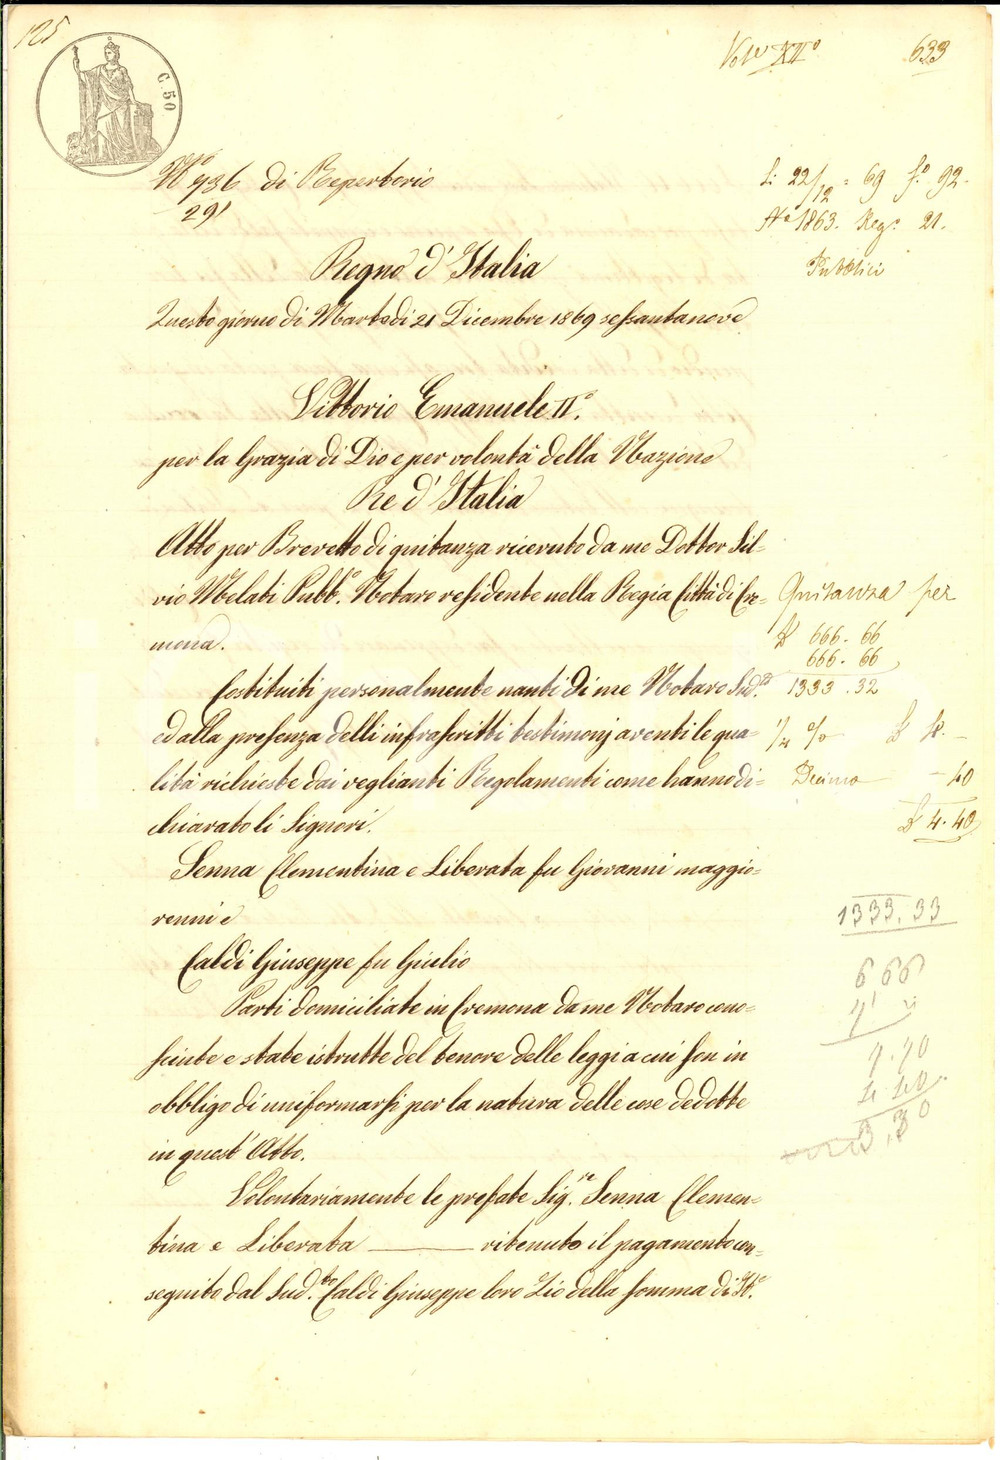 125
C. 50
Vol.e XII°
633
N.ro 736 di Repertorio
291
Li 22/12 = 69 f.° 92.
N.° 1863. Reg.° 21.
Pubblici
Regno d'Italia
Questo giorno di Martedi 21 Dicembre 1869 sessantanove
Vittorio Emanuele II°.
per la Grazia di Dio e per volontà della Nazione
Re d'Italia
Atto per Brevetto di quitanza ricevuto da me Dottor Sil=
vio Melati Pubb.° Notaro residente nella Regia Città di Cre=
mona.
Quitanza per
£ 666. 66
666. 66
1333. 32
Costituiti personalmente nanti di me Notaro Sud.°
ed alla presenza delli infrascritti testimonj aventi le qua=
1/4 % £ 4. —
lità richieste dai veglianti Regolamenti come hanno di=
Decimo — 40
chiarato li Signori.
£ 4. 40
Senna Clementina e Liberata fu Giovanni maggio=
renni e
1333. 33
Caldi Giuseppe fu Giulio
666
Parti domiciliate in Cremona da me Notaro cono=
sciute e state istrutte del tenore delle leggi a cui son in
7. 70
obbligo di uniformarsi per la natura delle cose dedotte
4 40
in quest'Atto.
3, 30
Volontariamente le prefate Sig.re Senna Clemen=
tina e Liberata ——— ritenuto il pagamento con=
seguito dal Sud.to Caldi Giuseppe loro Zio della somma di It.e